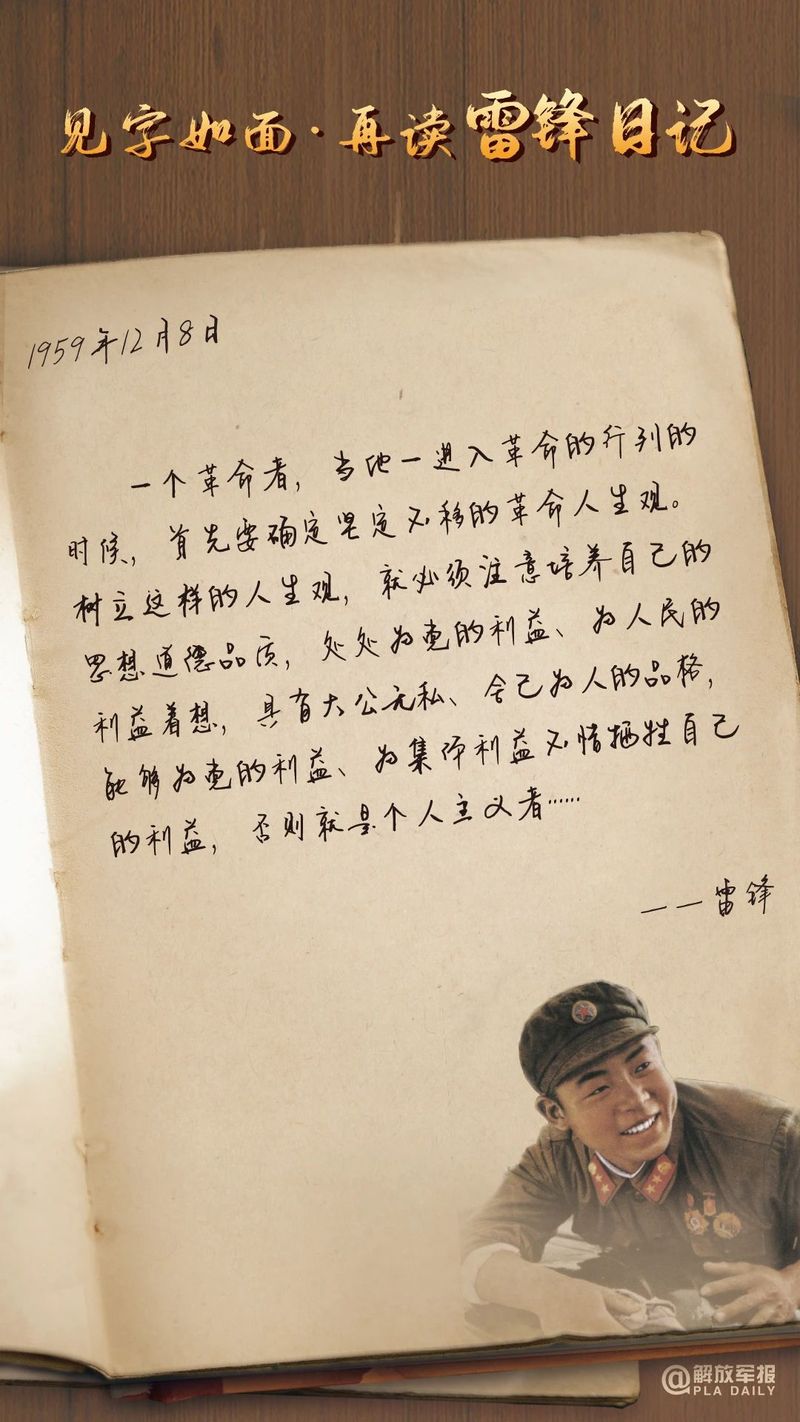 见字如面·再读雷锋日记
1959年12月8日
一个革命者，当他一进入革命的行列的
时候，首先要确定坚定不移的革命人生观。
树立这样的人生观，就必须注意培养自己的
思想道德品质，处处为党的利益、为人民的
利益着想，具有大公无私、舍己为人的品格，
能够为党的利益、为集体利益不惜牺牲自己
的利益，否则就是个人主义者……
——雷锋
@解放军报
PLA DAILY